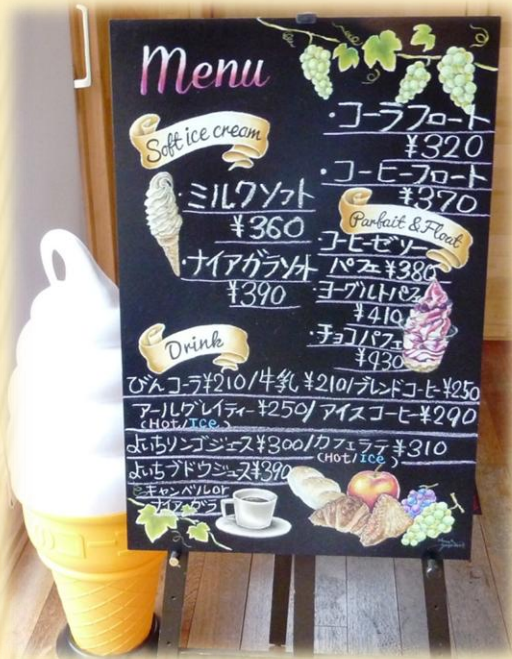 Menu
Soft ice cream
・ミルクソフト
¥360
・ナイアガラソフト
¥390
・コーラフロート
¥320
・コーヒーフロート
¥370
Parfait & Float
・コーヒーゼリー
パフェ ¥380
・ヨーグルトパフェ
¥410
・チョコパフェ
¥430
Drink
びんコーラ¥210/牛乳 ¥210/ブレンドコーヒー¥250
アールグレイティー ¥250/ アイスコーヒー ¥290
(Hot/Ice)
よいちリンゴジュース¥300/カフェラテ ¥310
(Hot/ice)
よいちブドウジュース¥390
キャンベルor
ナイアガラ